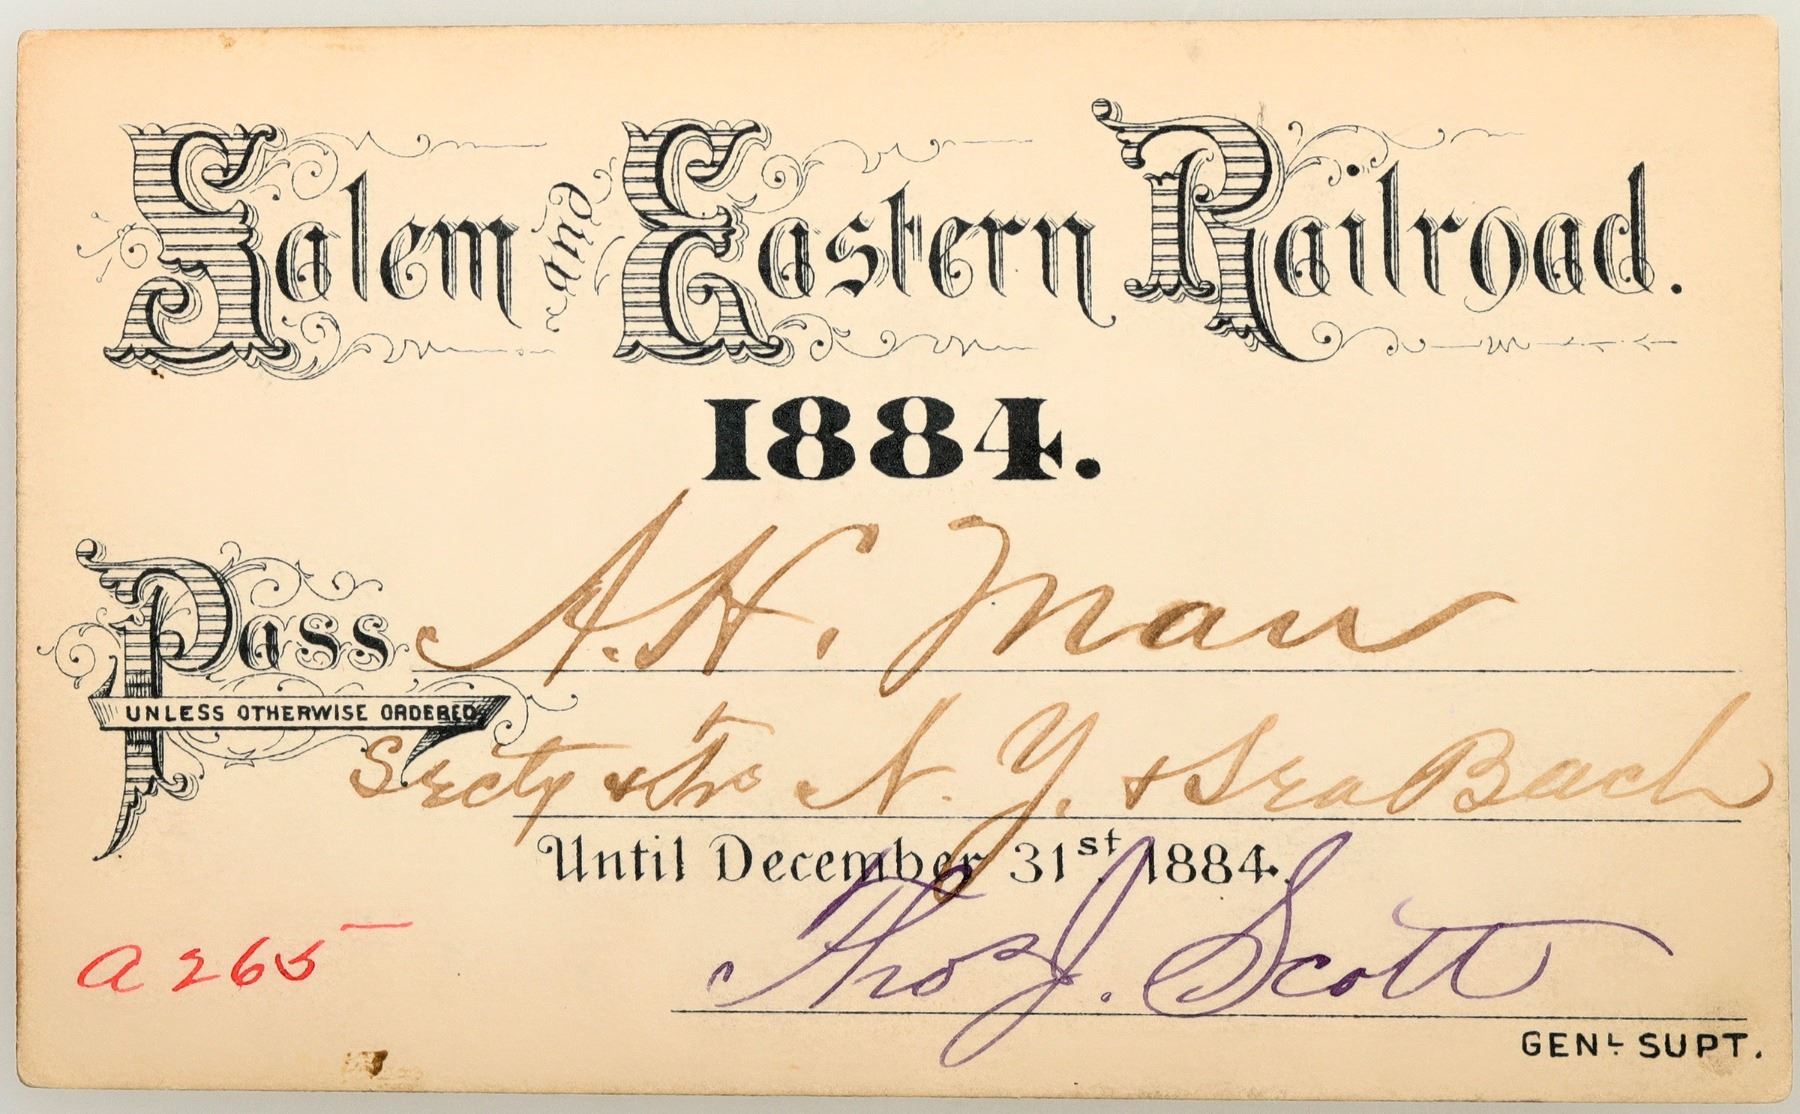 Salem and Eastern Railroad.
1884.
Pass A. H. Man
UNLESS OTHERWISE ORDERED
Secty & Trs N. Y. & Sea Bach
Until December 31st 1884.
Thos J. Scott
a 265
GENL SUPT.